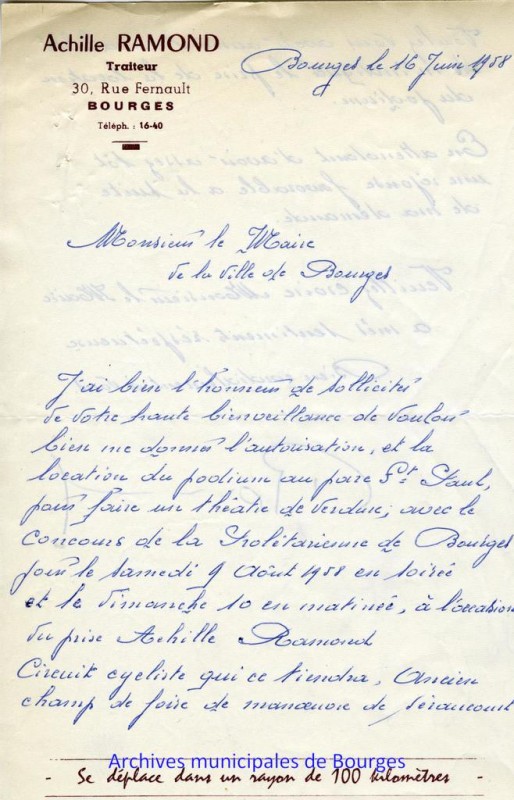 Achille RAMOND
Traiteur
30, Rue Fernault
BOURGES
Téléph. : 16-40
Bourges le 16 Juin 1958
Monsieur le Maire
de la ville de Bourges
J'ai bien l'honneur de sollicité
de votre haute bienveillance de vouloir
bien me donner l'autorisation, et la
location du podium au parc St Paul,
pour faire un théatre de verdure, avec le
concours de la Prolétarienne de Bourges
pour le samedi 9 Août 1958 en soirée
et le dimanche 10 en matinée, à l'occasion
du prise Achille Ramond
Circuit cycliste qui ce tiendra, Ancien
champ de foire de manœuvre de Séraucourt
Archives municipales de Bourges
- Se déplace dans un rayon de 100 kilomètres -